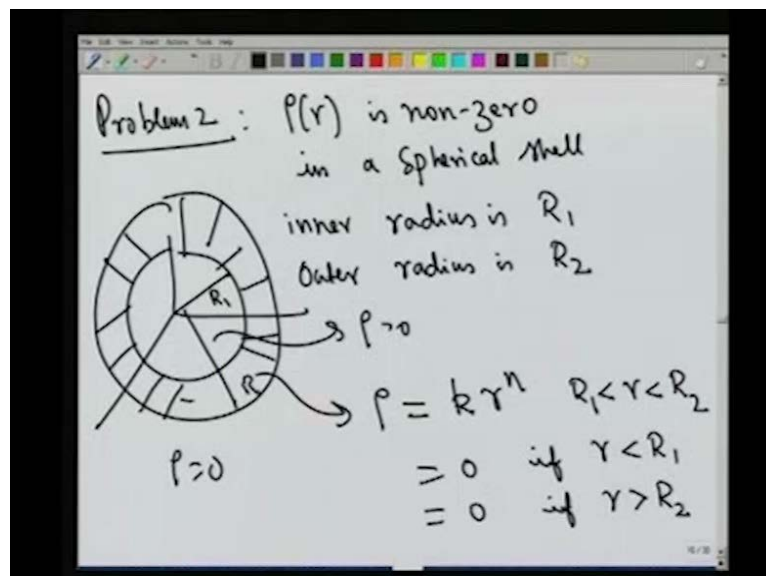 File Edit View Insert Actions Tools Help
Problem 2 : ρ(r) is non-zero
in a Spherical shell
inner radius is R₁
Outer radius is R₂
R₁
ρ=0
R
ρ = k rⁿ R₁< r < R₂
ρ=0
= 0 if r < R₁
= 0 if r > R₂